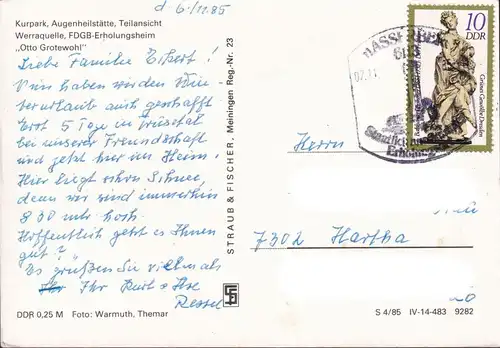 d. 6./11.85
Kurpark, Augenheilstätte, Teilansicht
Werraquelle, FDGB-Erholungsheim
„Otto Grotewohl"
Liebe Familie Eckert!
Nun haben wir den Win-
terurlaub auch geschafft
Erst 5 Tage in Trusetal
bei unserer Freundschaft
und jetzt hier im Heim!
Hier liegt schon Schnee,
denn wir sind immerhin
830 mtr hoch.
Hoffentlich geht es Ihnen
gut?
Es grüßen Sie vielmals
Ihr Kurt + Ilse
Ressel
DDR 0,25 M Foto: Warmuth, Themar
STRAUB & FISCHER, Meiningen Reg.-Nr. 23
MASSERBERG
6113
07.11.
Staatlicher
Erholung
10
DDR
Grünes Gewölbe Dresden
Herrn
7302 Hartha
20
S 4/85 IV-14-483 9282